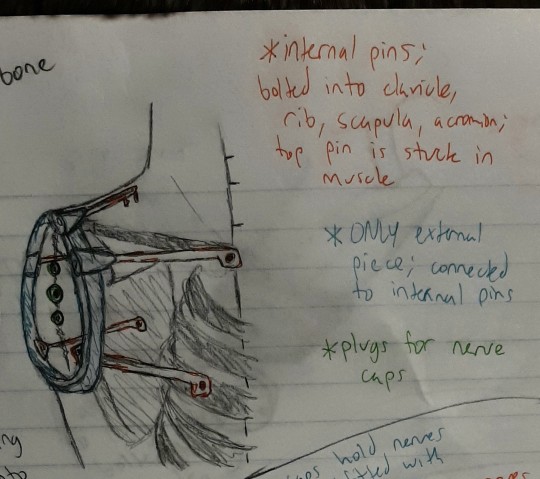 bone
*internal pins;
bolted into clavicle,
rib, scapula, acromion;
top pin is stuck in
muscle
*ONLY external
piece; connected
to internal pins
*plugs for nerve
caps
hold nerves
with